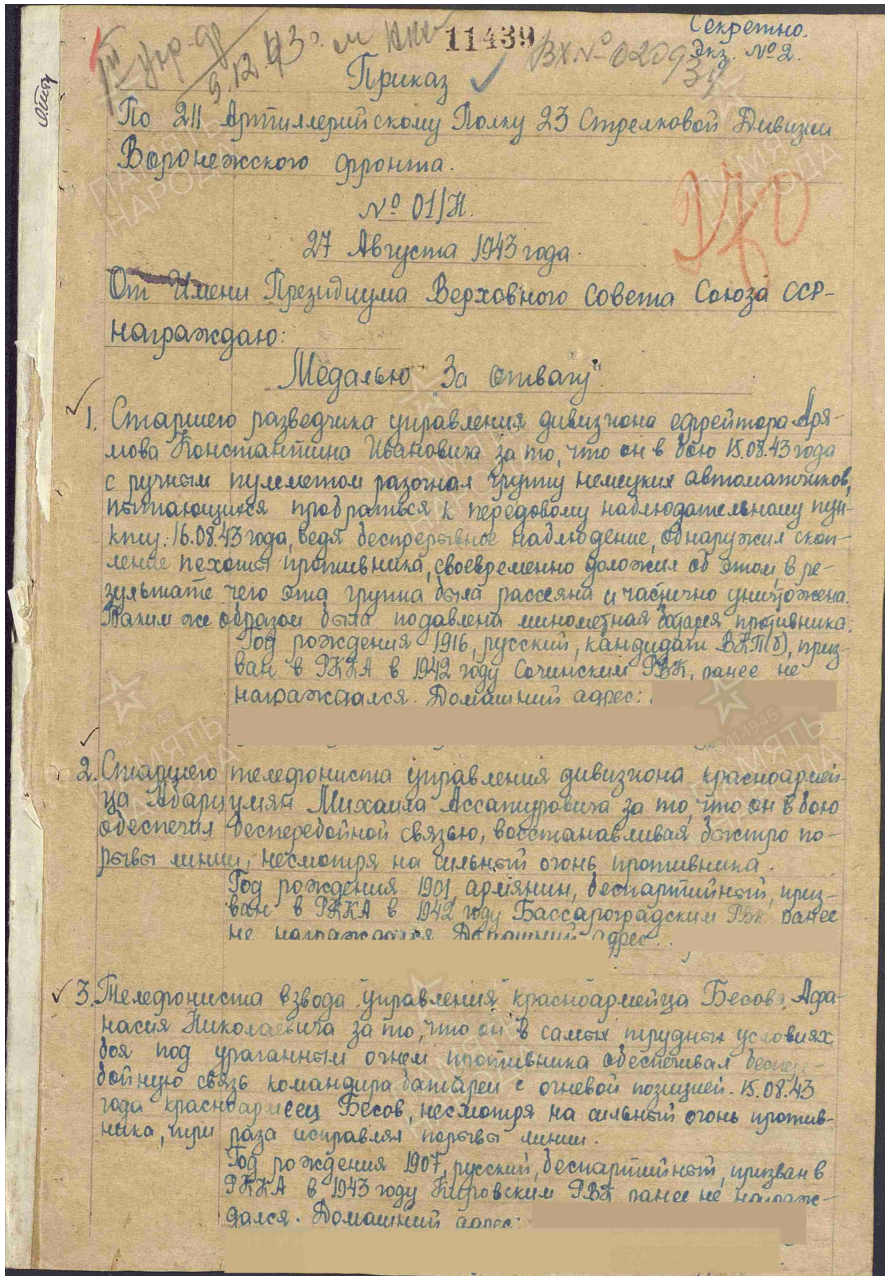 Секретно.
Экз. №2.
11439
9.12.43г.
ВХ№
Приказ
По 211 Артиллерийскому Полку 23 Стрелковой Дивизии
Воронежского фронта.
№ 01/Н.
27 Августа 1943 года.
От Имени Президиума Верховного Совета Союза ССР-
награждаю:
Медалью "За отвагу"
1. Старшего разведчика управления дивизиона ефрейтора Аря-
мова Константина Ивановича за то, что он в бою 15.08.43 года
с ручным пулеметом разогнал группу немецких автоматчиков,
пытающихся пробраться к передовому наблюдательному пун-
кту. 16.08.43 года, ведя беспрерывное наблюдение, обнаружил скоп-
ление пехоты противника, своевременно доложил об этом, в ре-
зультате чего эта группа была рассеяна и частично уничтожена.
Таким же образом была подавлена минометная батарея противника.
Год рождения 1916, русский, кандидат ВКП(б), приз-
ван в РККА в 1942 году Сочинским РВК, ранее не
награждался. Домашний адрес:
2. Старшего телефониста управления дивизиона красноармей-
ца Абарцумян Михаила Ассатуровича за то, что он в бою
обеспечил бесперебойной связью, восстанавливая быстро по-
рывы линии, несмотря на сильный огонь противника.
Год рождения 1901, армянин, беспартийный, приз-
ван в РККА в 1942 году Бассароградским РВК ранее
не награждался Домашний адрес
3. Телефониста взвода управления красноармейца Бесова Афа-
насия Николаевича за то, что он в самых трудных условиях
боя под ураганным огнем противника обеспечивал беспере-
бойную связь командира батареи с огневой позицией. 15.08.43
года красноармеец Бесов, несмотря на сильный огонь против-
ника, три раза исправлял порывы линии.
Год рождения 1907, русский, беспартийный, призван в
РККА в 1943 году Кировским РВК ранее не награж-
дался. Домашний адрес:
ПАМЯТЬ
НАРОДА